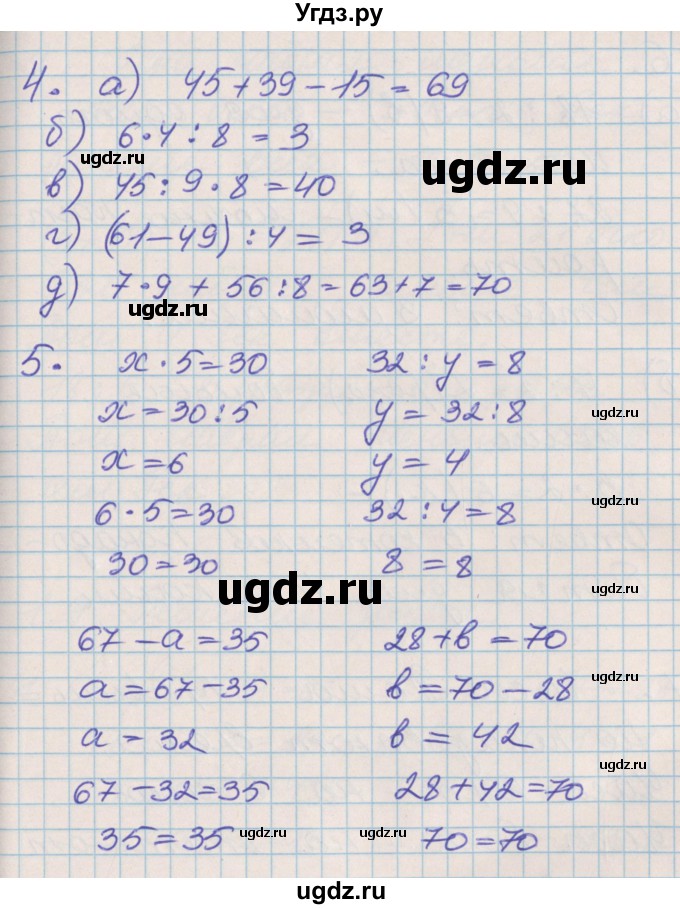 Угдз.ру
4. а) 45+39-15=69
б) 6·4:8=3
ugdz.ru
ugdz.ru
в) 45:9·8=40
г) (61-49):4=3
д) 7·9+56:8=63+7=70
ugdz.ru
5. x·5=30 32:y=8
x=30:5 y=32:8
ugdz.ru
x=6 y=4
6·5=30 32:4=8
ugdz.ru
30=30 8=8
ugdz.ru
67-a=35 28+в=70
a=67-35 в=70-28
ugdz.ru
a=32 в=42
67-32=35 28+42=70
35=35 70=70
ugdz.ru
ugdz.ru
ugdz.ru